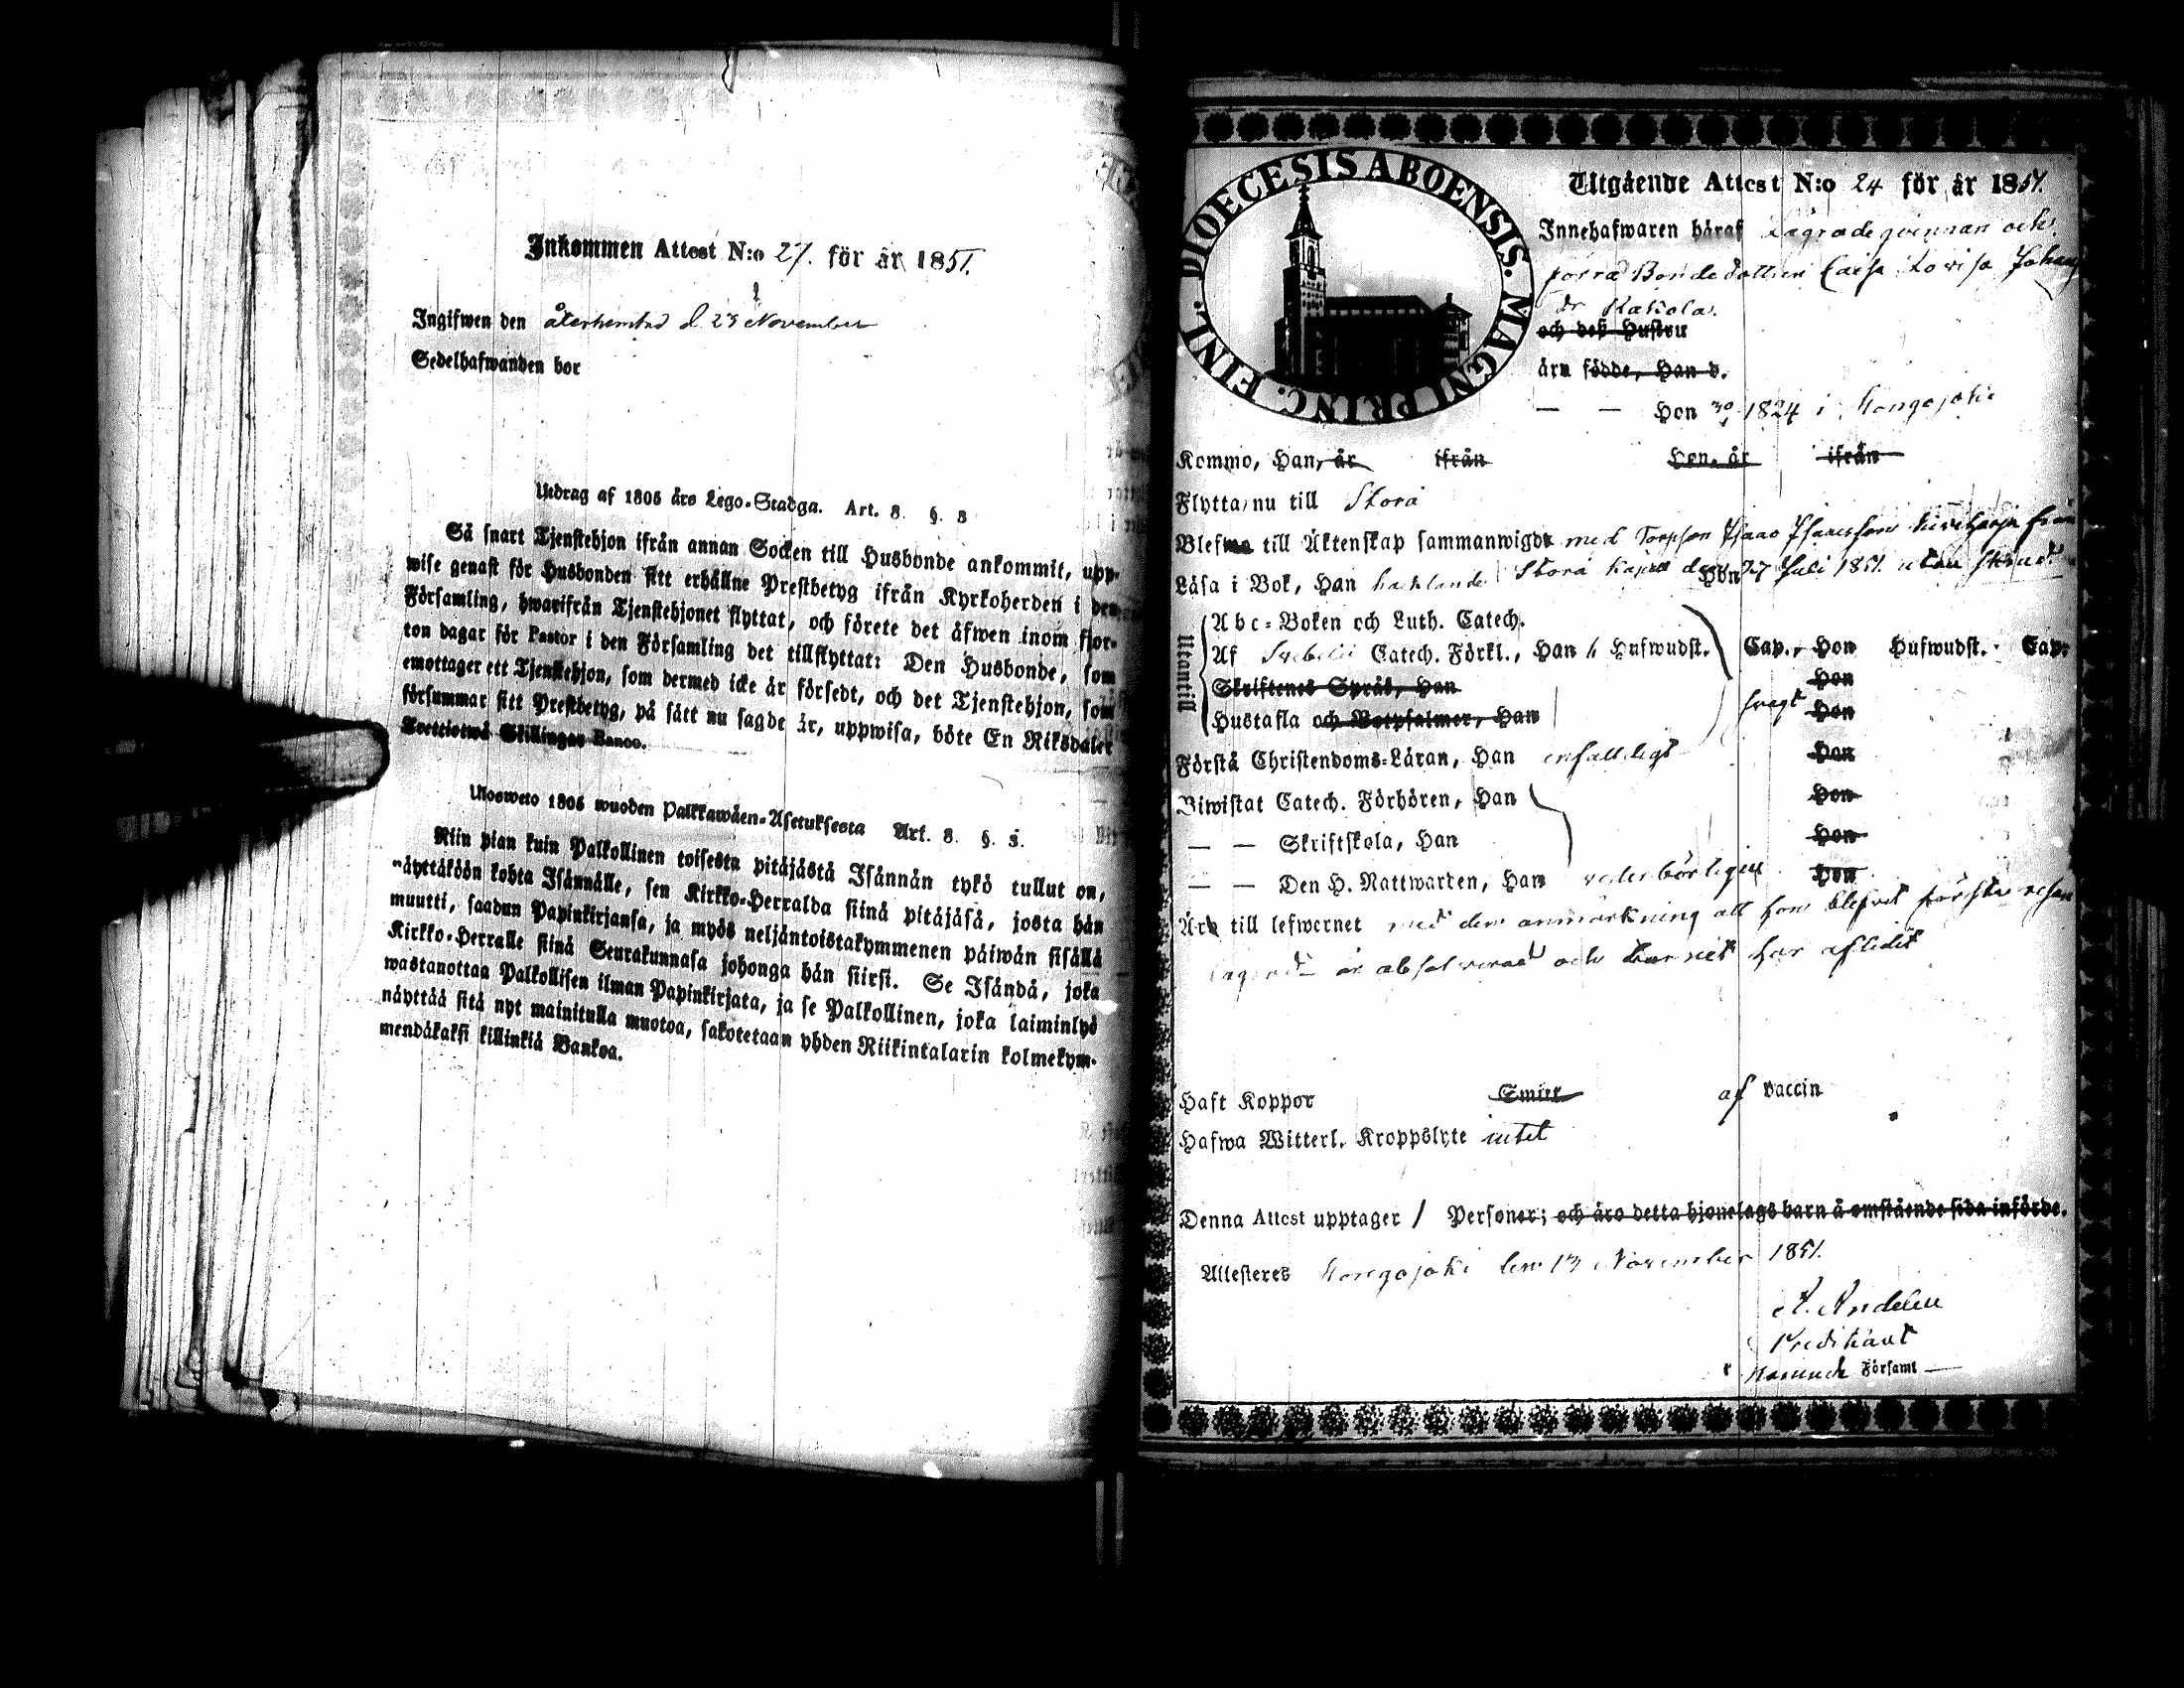 Inkommen Attest N:o 27. för år 1851.
Ingifwen den återhemtad d. 23 November
Sedelhafwanden bor
Utdrag af 1805 års Lego-Stadga. Art. 8. §. 3
Så snart Tjenstehjon ifrån annan Socken till Husbonde ankommit, upp-
wise genast för Husbonden sitt erhållne Prestbetyg ifrån Kyrkoherden i den
Församling, hwarifrån Tjenstehjonet flyttat, och förete det äfwen inom fjor-
ton dagar för Pastor i den Församling det tillflyttat: Den Husbonde, som
emottager ett Tjenstehjon, som dermed icke är försedt, och det Tjenstehjon, som
försummar sitt Prestbetyg, på sätt nu sagdt är, uppwisa, böte En Riksdaler
Trettiotwå Skillingar Banco.
Ulosweto 1805 wuoden Palkkawäen-Asetuksesta Art. 8. §. 3.
Niin pian kuin Palkollinen toisesta pitäjästä Isännän tykö tullut on,
näyttäköön kohta Isännälle, sen Kirkko-Herralda siinä pitäjäsä, josta hän
muutti, saadun Papinkirjansa, ja myös neljäntoistakymmenen päiwän sisällä
Kirkko-Herralle siinä Seurakunnasa johonga hän siirsi. Se Isändä, joka
wastanottaa Palkollisen ilman Papinkirjata, ja se Palkollinen, joka laiminlyö
näyttää sitä nyt mainitulla muotoa, sakotetaan yhden Riikintalarin kolmekym-
mendäkaksi killinkiä Bankoa.
DIOECESIS ABOENSIS. MAGNI PRINC. FINL.
Utgående Attest N:o 24 för år 1851.
Innehafwaren häraf Lägradeqvinnan och
förra Bondedottren Caisa Lovisa Johans
dr Kakola.
och deß Hustru
äro födde, Han d.
— — Hon 1824 i Hongojoki
Kommo, Han, år ifrån Hon, år ifrån
Flytta nu till Storå
Blefwo till Äktenskap sammanwigde med Torpson Isaac Isaacsson från
Läsa i Bok, Han Storå Hon 27 Juli 1851. utan skrud
Utantill
Abc-Boken och Luth. Catech.
Af Svebelii Catech. Förkl., Han Hufwudst. Cap., Hon Hufwudst. Cap.
Skriftenes Språk, Han Hon
Hustafla och Botpsalmer, Han svagt Hon
Förstå Christendoms-Läran, Han enfalldigt Hon
Biwistat Catech. Förhören, Han Hon
— — Skriftskola, Han Hon
— — Den H. Nattwarden, Han vederbörligen Hon
Äro till lefwernet med den anmärkning att hon blifvit första resan
lägrad är absolverad och barnet har aflidit
Haft Koppor Smitt. af vaccin
Hafwa Witterl. Kroppslyte intet
Denna Attest upptager 1 Personer; och äro detta hjonelags barn å omstående sida införde.
Attesteres Hongojoki den 13 November 1851.
A. Andelin
Predikant
Församl